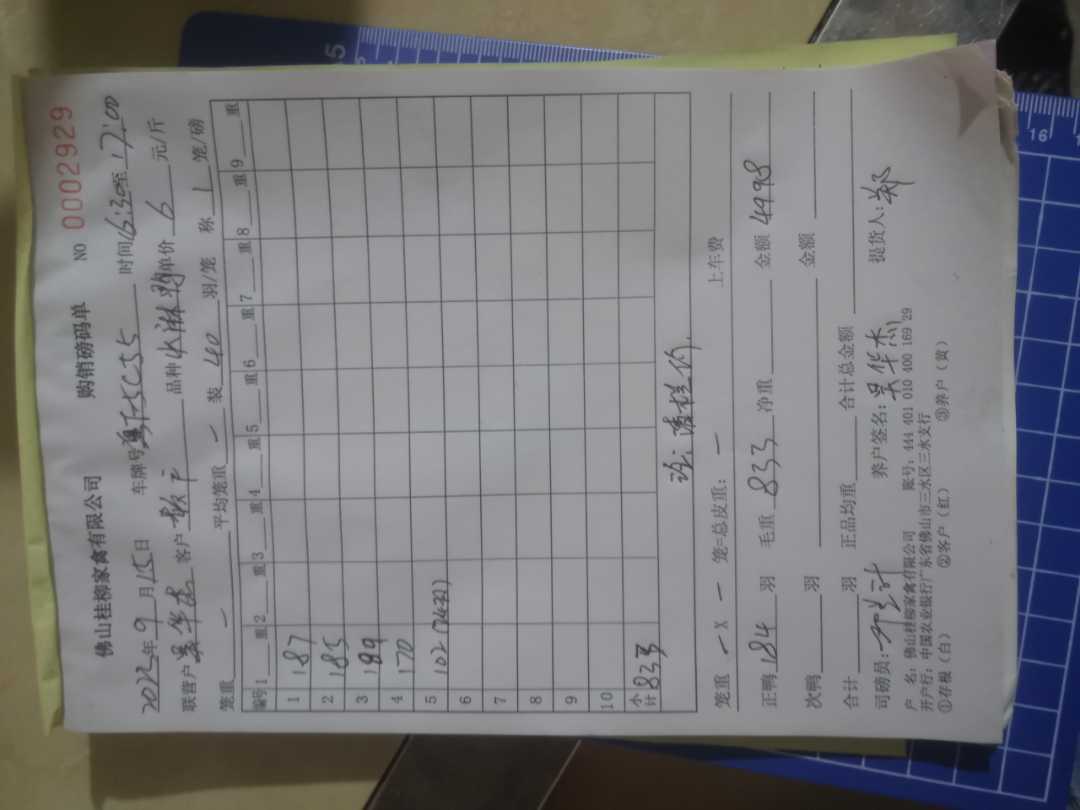 佛山桂柳家禽有限公司 购销磅码单 NO 0002929
2022年9月15日 车牌号 时间16:30至17:00
联营户 客户 散户 品种 单价 6 元/斤
笼重 一 平均笼重 一 装 40 羽/笼 称 1 笼/磅
编号 1 重 2 重 3 重 4 重 5 重 6 重 7 重 8 重 9 重
1 187
2 185
3 189
4 170
5 102 (24羽)
6
7
8
9
10
小计 833
笼重 一 X 一 笼=总皮重: 一 上车费
正鸭 184 羽 毛重 833 净重 金额 4998
次鸭 羽 金额
合计 羽 正品均重 合计总金额
司磅员: 养户签名: 吴华杰 提货人: 郑
户 名: 佛山桂柳家禽有限公司 账号: 444 401 010 400 169 29
开户行: 中国农业银行广东省佛山市三水区三水支行
①存根（白） ②客户（红） ③养户（黄）
5
16